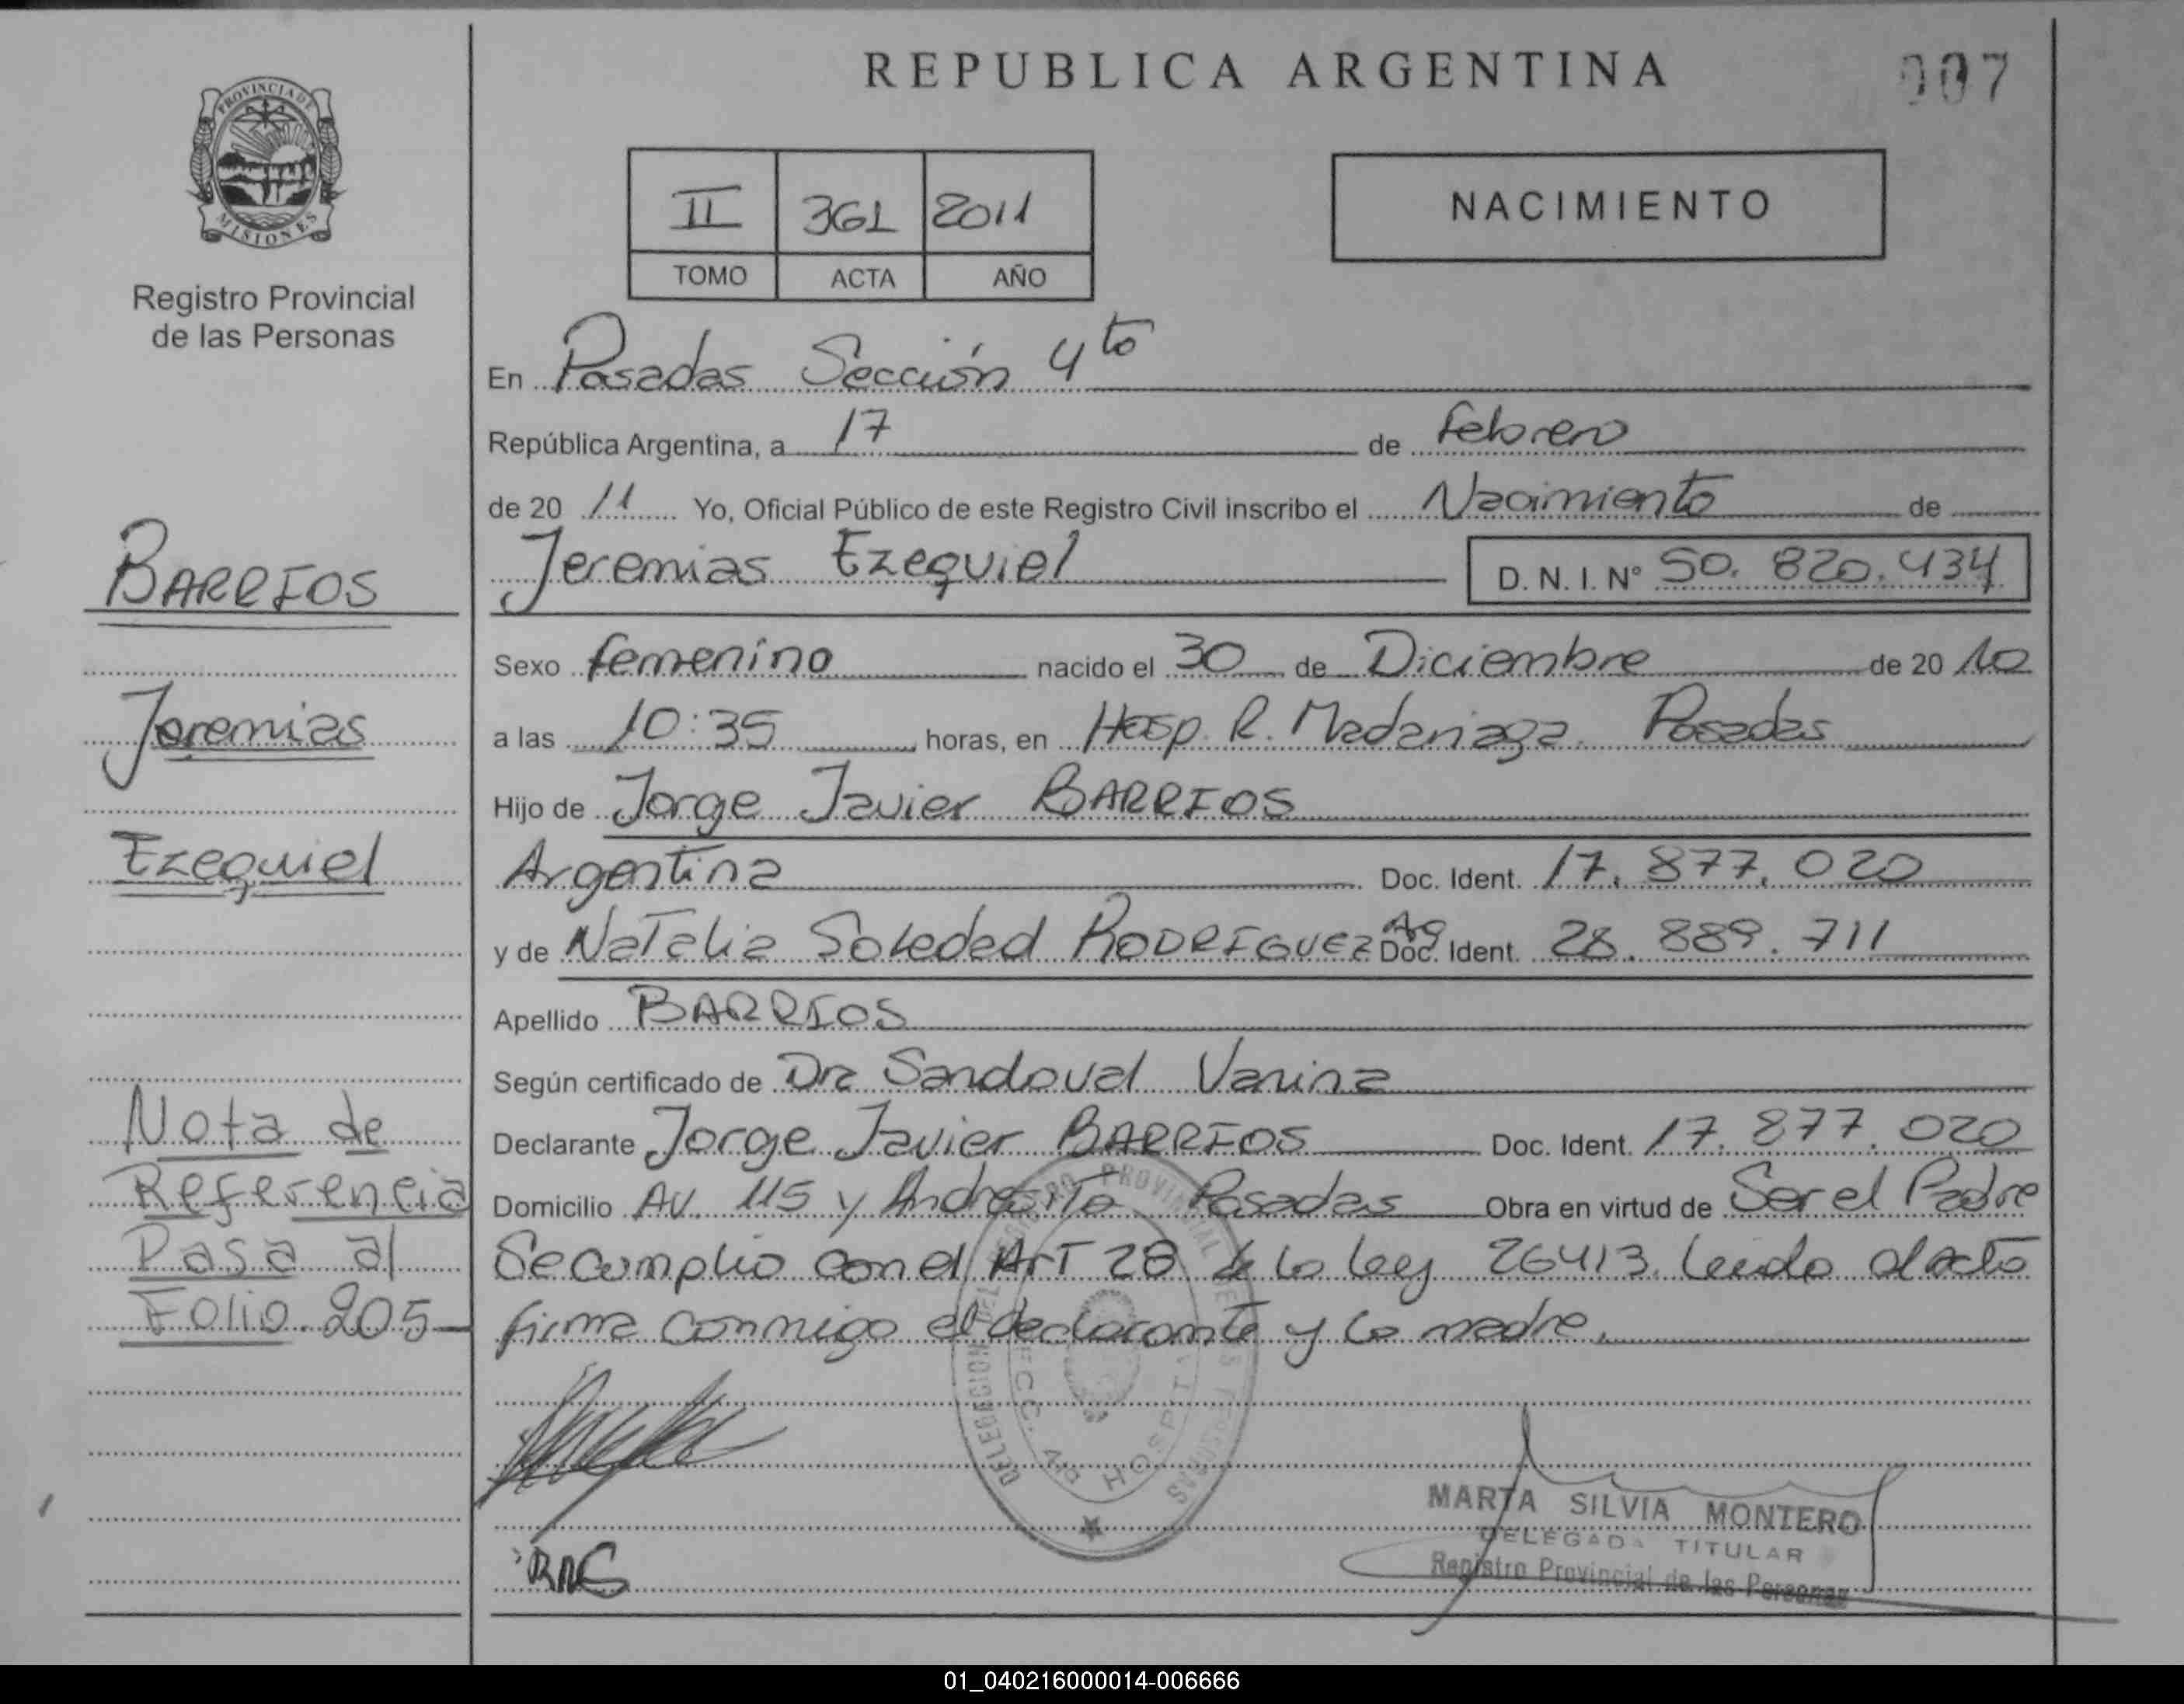 REPUBLICA ARGENTINA
007
PROVINCIA DE
MISIONES
Registro Provincial
de las Personas
II 361 2011
TOMO ACTA AÑO
NACIMIENTO
En Posadas Sección 4to
República Argentina, a 17 de febrero
de 20 11 Yo, Oficial Público de este Registro Civil inscribo el Nacimiento de
Jeremias Ezequiel D. N. I. N° 50. 820. 434
Sexo femenino nacido el 30 de Diciembre de 20 10
a las 10:35 horas, en Hosp. R. Madariaga. Posadas
Hijo de Jorge Javier BARRIOS
Argentina Doc. Ident. 17. 877. 020
y de Natalia Soledad RODRIGUEZ Ag Doc. Ident. 28. 889. 711
Apellido BARRIOS
Según certificado de Dra Sandoval Vanina
Declarante Jorge Javier BARRIOS Doc. Ident. 17. 877. 020
Domicilio Av. 115 y Andresito Posadas Obra en virtud de Ser el Padre
Se cumplio con el Art 28 de la ley 26413. Leido el acto
firma conmigo el declarante y la madre.
BARRIOS
Jeremias
Ezequiel
Nota de
Referencia
Pasa al
Folio 205
DELEGACION DEL REGISTRO PROVINCIAL DE LAS PERSONAS
SECC. 4ta HOSPITAL
MARTA SILVIA MONTERO
DELEGADA TITULAR
Registro Provincial de las Personas
01_040216000014-006666